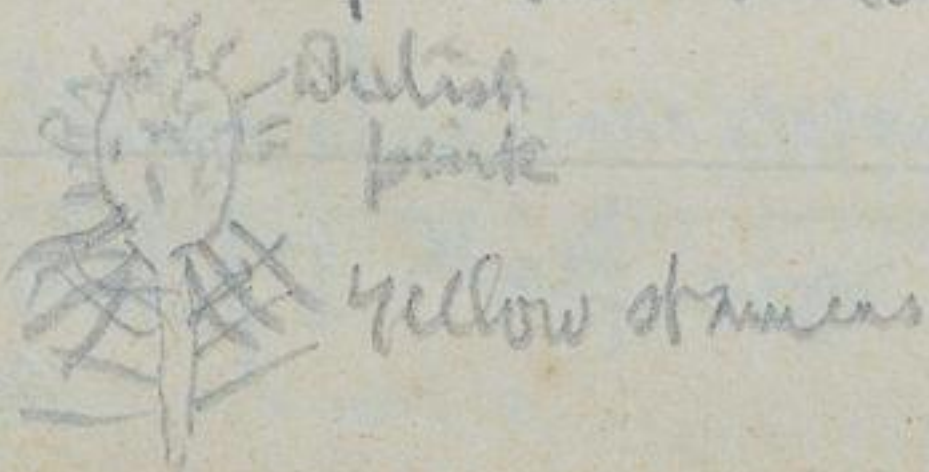 Dulish
pink
Yellow stamens